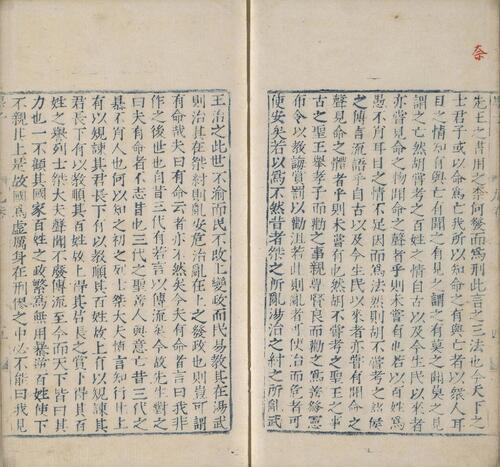 奈
先王之書用之奈何發而爲刑此言之三法也今天下之
士君子或以命爲亡我所以知命之有與亡者以衆人耳
目之情知有與亡有聞之有見之謂之有莫之聞莫之見
謂之亡然胡嘗考之百姓之情自古以及今生民以來者
亦嘗見命之物聞命之聲者乎則未嘗有也若以百姓爲
愚不肖耳目之情不足因而爲法然則胡嘗考之諸侯
之傳言流語乎自古以及今生民以來者亦嘗有聞命之
聲見命之體者乎則未嘗有也然胡不嘗考之聖王之事
古之聖王舉孝子而勸之事親尊賢良而勸之爲善發憲
布令以教誨賞罰以勸沮若此則亂者可使治而危者可
使安矣若以爲不然昔者桀之所亂湯治之紂之所亂武
王治之此世不渝而民不改上變政而民易教其在湯武
則治其在桀紂則亂安危治亂在上之發政也則豈可謂
有命哉夫曰有命云者亦不然矣今夫有命者言曰我非
作之後世也自昔三代有若言以傳流矣今故先生對之
曰夫有命者不志昔也三代之聖善人與意亡昔三代之
暴不肖人也何以知之初之列士桀大夫慎言知行此上
有以規諫其君長下有以教順其百姓故上有以規諫其
君長下有以教順其百姓故上得其君長之賞下得其百
姓之譽列士桀大夫聲聞不廢傳流至今而天下皆曰其
力也一不顧其國家百姓之政繁爲無用暴逆百姓使下
不親其上是故國爲虛厲身在刑僇之中必不能曰我見